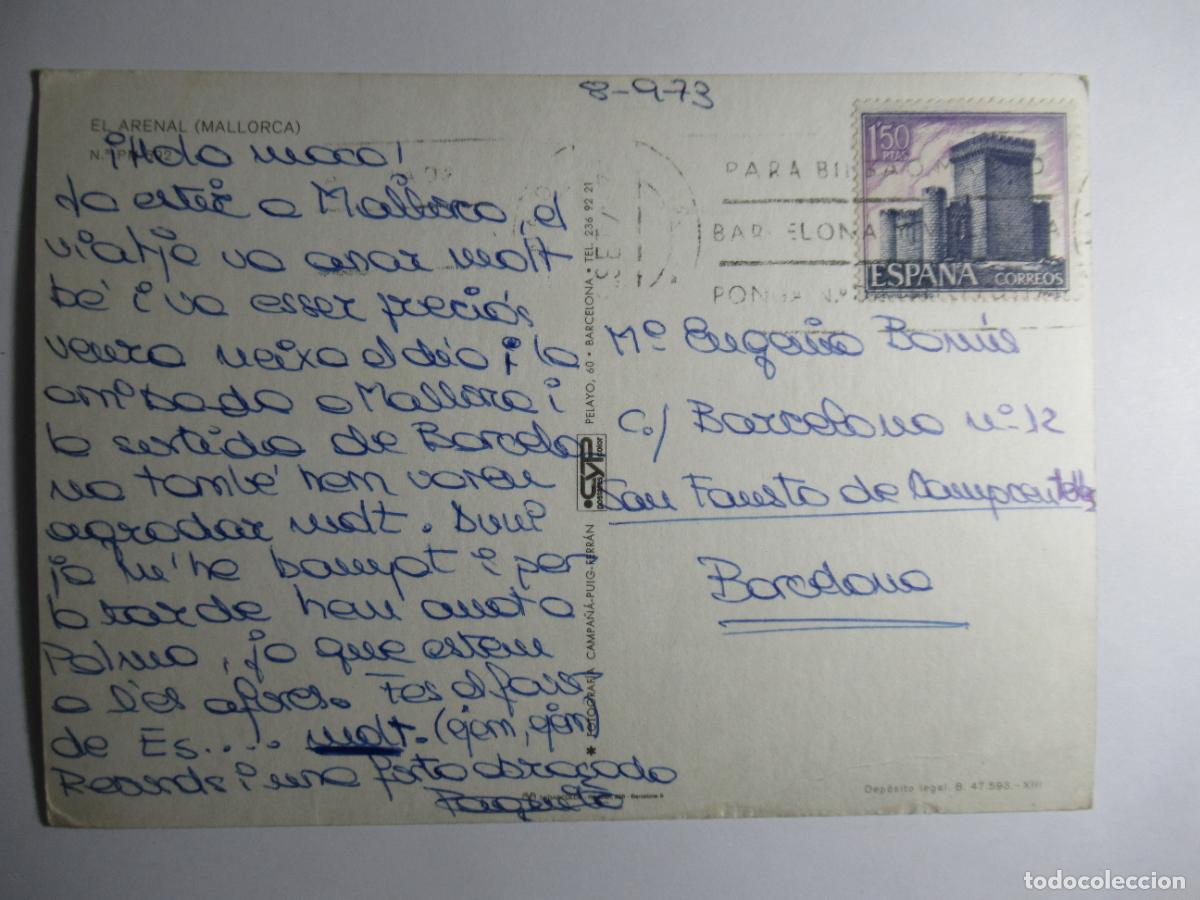 8-9-73
EL ARENAL (MALLORCA)
¡Hola maco!
Ja estic a Mallorca el
viatje va anar molt
bé i va esser preciós
veura neixa el dia i la
arribada a Mallorca i
la sortida de Barcelo
na també hem varen
agradar molt. Avui
ja m'he banyat i per
la tarde hem anat a
Palma, ja que estem
a les afores. Fes el favor
de Es.... molt. (ejem, ejem)
Records i una forta abraçada
Paquita
1'50
PTAS
ESPAÑA CORREOS
PARA BILBAO
BARCELONA
PONGA N.º
Mª Eugenia
c/ Barcelona nº 12
San Fausto de Campcentellas
Barcelona
* FOTOGRAFIA CAMPAÑÁ-PUIG-FERRÁN
CYP
postales color
PELAYO, 60 • BARCELONA • TEL. 236 92 21
Depósito legal. B. 47.593.-XIII
todocoleccion